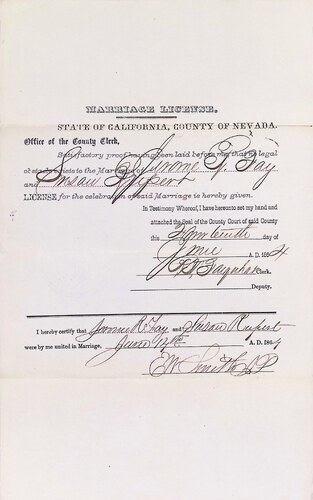 MARRIAGE LICENSE.
STATE OF CALIFORNIA, COUNTY OF NEVADA.
Office of the County Clerk,
Satisfactory proof having been laid before me, that no legal
obstacle exists to the Marriage of
and Susan
LICENSE for the celebration of said Marriage is hereby given.
In Testimony Whereof, I have hereunto set my hand and
attached the Seal of the County Court of said County
this day of
June A. D. 1864
Clerk.
Deputy.
I hereby certify that and Susan Rupert
were by me united in Marriage, June A. D. 1864